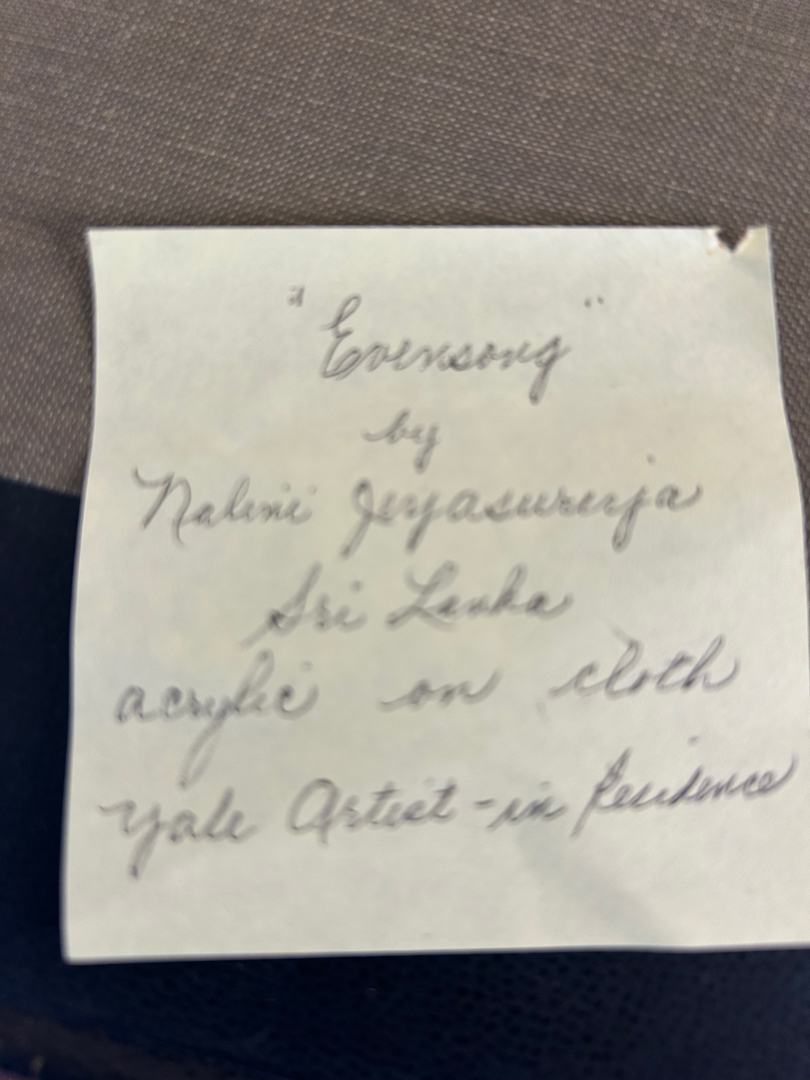 "Evensong"
by
Nalini Jeyasureja
Sri Lanka
acrylic on cloth
Yale Artist-in Residence